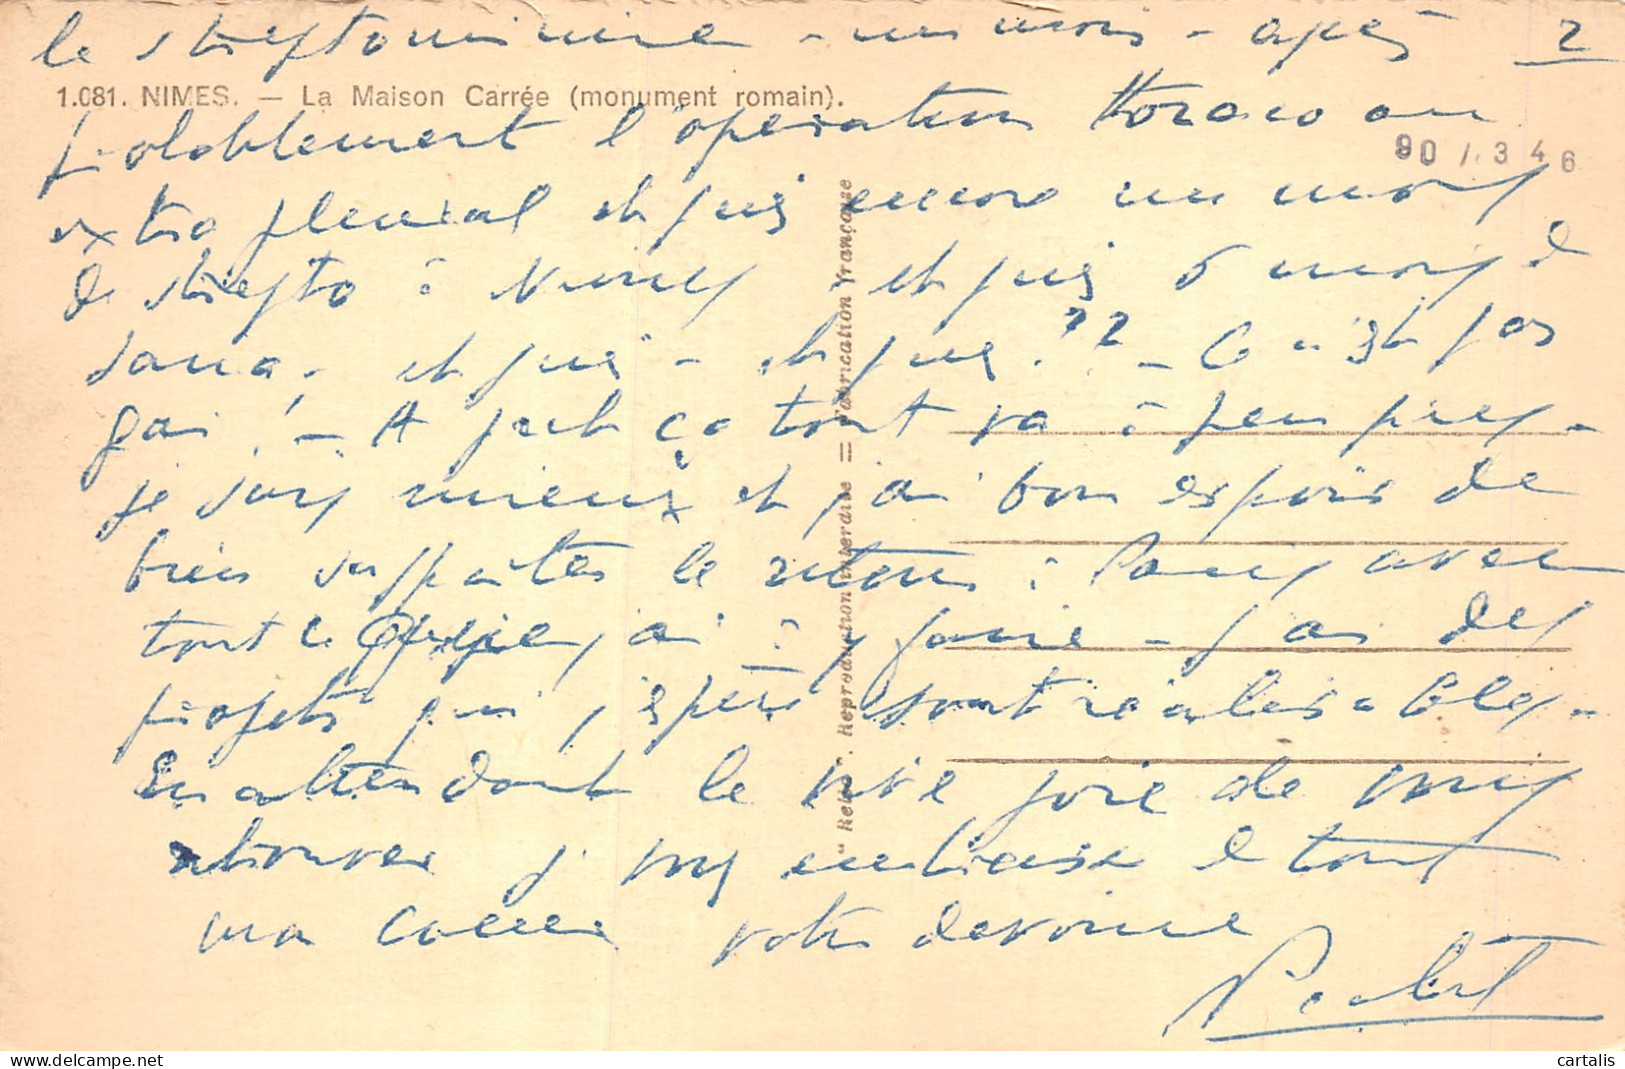 la streptomicine - un mois - après 2
1.081. NIMES. — La Maison Carrée (monument romain).
probablement l'opération thoraco ou
90 / 3 4 6
extra pleural et puis encore un mois
de strepto à Nimes - et puis 6 mois de
sana. et puis - et puis ?? - Ce n'est pas
gai ! - A part ça tout va à peu près -
je suis mieux et j'ai bon espoir de
bien supporter le retour à Paris avec
tout ce que j'ai à y faire - J'ai des
projets qui j'espère sont réalisables -
En attendant la vive joie de vous
retrouver je vous embrasse de tout
mon coeur votre
"Reproduction interdite = Fabrication Française
cartalis